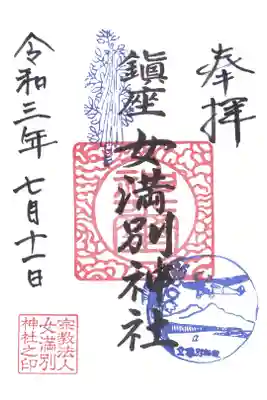 奉拝
鎮座 女満別神社
令和三年 七月十一日
宗教法人
女満別
神社之印